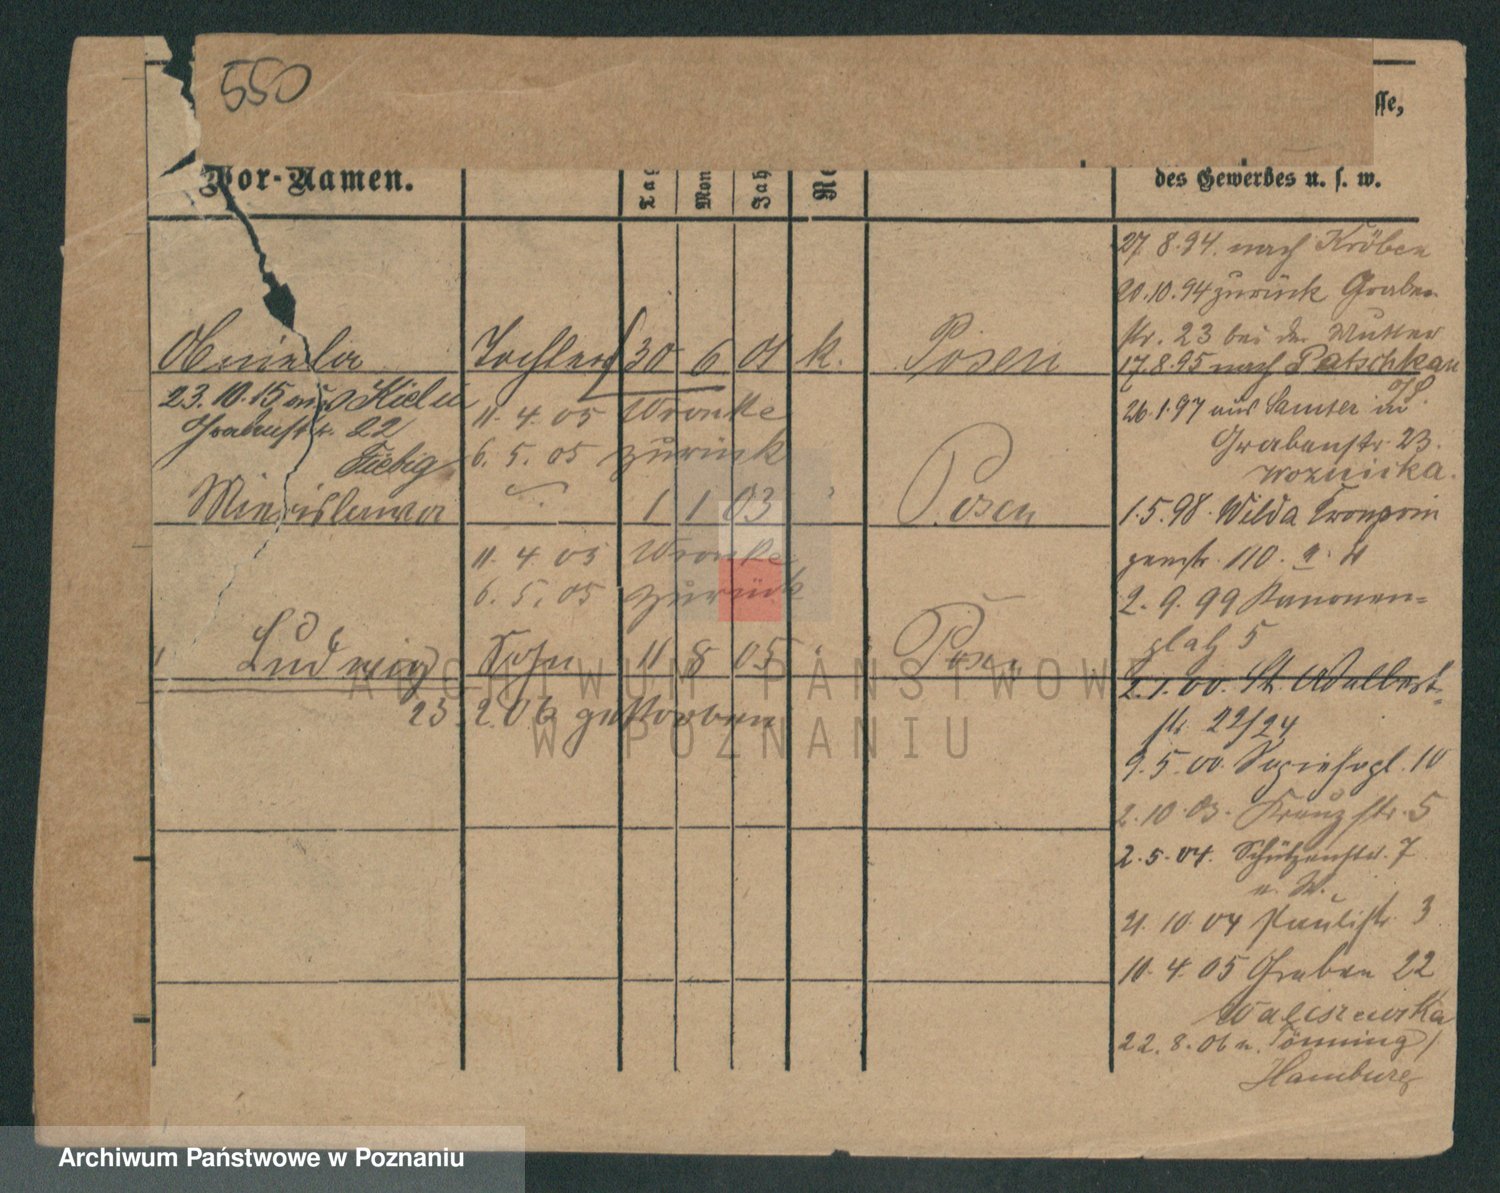 550
sse,
Vor-Namen.
Tag
Mon
Jah
Re
des Gewerbes u. s. w.
Tochter 30 6 01 k. Posen
23.10.15 aus Kiel u
Grabenstr. 22
Fiebig
11. 4. 05 Wronke
6. 5. 05 zurück
Miecislawa 1 1 03 Posen
11. 4. 05 Wronke
6. 5. 05 zurück
Ludwig Sohn 11 8 05 Posen
23.2.06 gestorben
27.8.94. nach Kröben
20.10.94 zurück Graben
str. 23 bei der Mutter
17.8.95 nach Patschkau
26.1.97 aus Samter
Grabenstr. 23.
Woznicka.
1.5.98. Wilda Kronprin
zenstr. 110.
2. 9. 99 Kanonen=
platz 5
2.1.00. St. Adalbert=
str. 22/24
9.5.00. Sapiehapl. 10
2.10.03. Kreuzstr. 5
2.5.04. Schützenstr. 7
u. W.
21. 10. 04 Paulistr. 3
10. 4. 05 Graben 22
Waliszewska
22. 8. 06 n. Tönning/
Hamburg
ARCHIWUM PAŃSTWOWE
W POZNANIU
Archiwum Państwowe w Poznaniu